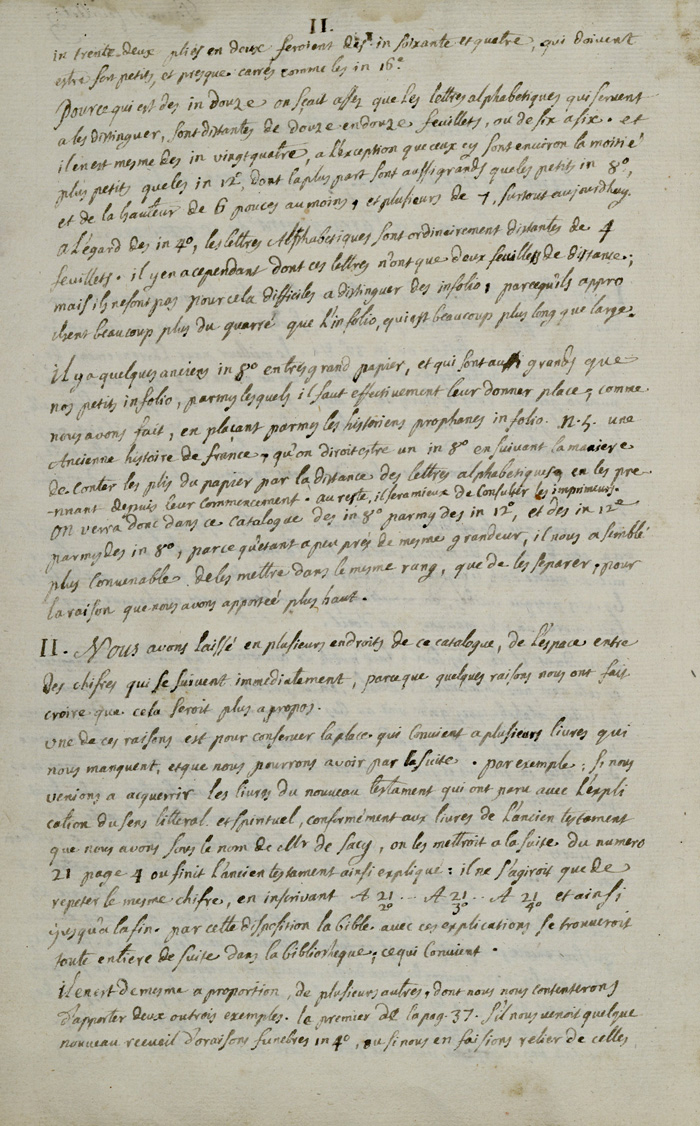 II.
in trente-deux pliés en deux seroient des in soixante et quatre, qui doivent
estre fort petits, et presque carrés comme les in 16.º
Pour ce qui est des in douze on sçait assez que les lettres alphabetiques qui servent
a les distinguer, sont distantes de douze en douze feuillets, ou de six a six. et
il en est mesme des in vingtquatre, a l'exception que ceux cy sont environ la moitié
plus petits que les in 12º, dont la plus part sont aussi grands que les petits in 8º,
et de la hauteur de 6 pouces au moins, et plusieurs de 7, surtout aujourdhuy.
a l'égard des in 4º, les lettres Alphabetiques sont ordinairement distantes de 4
feuillets. il y en a cependant dont ces lettres n'ont que deux feuillets de distance;
mais ils ne sont pas pour cela difficiles a distinguer des infolio, parcequ'ils appro
chent beaucoup plus du quarré que l'infolio, qui est beaucoup plus long que large.
il y a quelques anciens in 8º en tres grand papier, et qui sont aussi grands que
nos petits infolio, parmy lesquels il faut effectivement leur donner place, comme
nous avons fait, en plaçant parmy les historiens prophanes infolio. N. 5. une
Ancienne histoire de france, qu'on diroit estre un in 8º en suivant la maniere
de conter les plis du papier par la distance des lettres alphabetiques, en les pre
-nnant depuis leur commencement. au reste, il sera mieux de consulter les imprimeurs.
On verra donc dans ce catalogue des in 8º parmy des in 12º, et des in 12º
parmy des in 8º, parce qu'etant a peu prés de mesme grandeur, il nous a semblé
plus convenable de les mettre dans le mesme rang, que de les separer, pour
la raison que nous avons apportée plus haut.
II. Nous avons laissé en plusieurs endroits de ce catalogue, de l'espace entre
des chifres qui se suivent immediatement, parceque quelques raisons nous ont fait
croire que cela seroit plus apropos.
une de ces raisons est pour conserver la place qui convient a plusieurs livres qui
nous manquent, et que nous pourrons avoir par la suite. par exemple; si nous
venions a acquerrir les livres du nouveau testament qui ont paru avec l'expli
cation du sens litteral et spirituel, conformément aux livres de l'ancien testament
que nous avons sous le nom de Mr de Sacy, on les mettroit a la suite du numero
21 page 4 ou finit l'ancien testament ainsi expliqué: il ne s'agiroit que de
repeter le mesme chifre, en inscrivant A 21/2º ... A 21/3º ... A 21/4º et ainsi
jusqu'a la fin. par cette disposition la bible avec ces explications se trouveroit
toute entiere de suite dans la bibliotheque; ce qui convient.
il en est de mesme a proportion, de plusieurs autres, dont nous nous contenterons
d'apporter deux ou trois exemples. le premier de la pag. 37. s'il nous venoit quelque
nouveau recueil d'oraisons funebres in 4º, ou si nous en faisions relier de celles